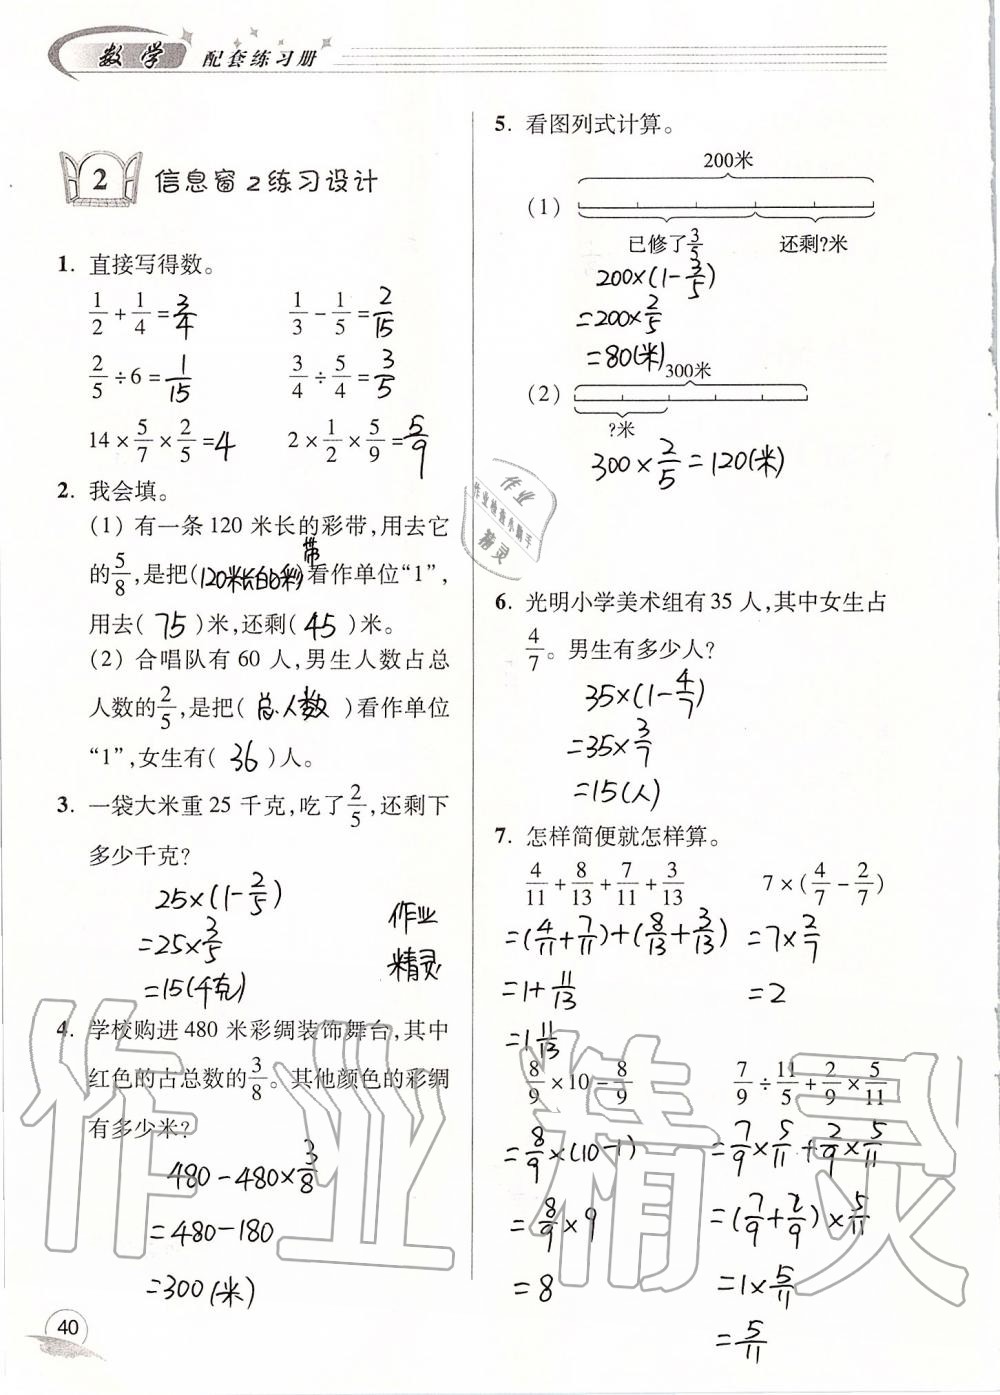 数学 配套练习册
2 信息窗2练习设计
1. 直接写得数。
1/2 + 1/4 = 3/4   1/3 - 1/5 = 2/15
2/5 ÷ 6 = 1/15   3/4 ÷ 5/4 = 3/5
14 × 5/7 × 2/5 = 4   2 × 1/2 × 5/9 = 5/9
2. 我会填。
(1) 有一条120米长的彩带,用去它
的5/8,是把(120米长的彩带)看作单位“1”,
用去( 75 )米,还剩( 45 )米。
(2) 合唱队有60人,男生人数占总
人数的2/5,是把( 总人数 )看作单位
“1”,女生有( 36 )人。
3. 一袋大米重25千克,吃了2/5,还剩下
多少千克?
25×(1-2/5)
=25×3/5
=15(千克)
作业
精灵
4. 学校购进480米彩绸装饰舞台,其中
红色的占总数的3/8。其他颜色的彩绸
有多少米?
480-480×3/8
=480-180
=300(米)
40
5. 看图列式计算。
200米
(1)
已修了3/5   还剩?米
200×(1-3/5)
=200×2/5
=80(米)
300米
(2)
?米
300×2/5=120(米)
作业
作业检查小帮手
精灵
6. 光明小学美术组有35人,其中女生占
4/7。男生有多少人?
35×(1-4/7)
=35×3/7
=15(人)
7. 怎样简便就怎样算。
4/11+8/13+7/11+3/13   7×(4/7-2/7)
=(4/11+7/11)+(8/13+3/13)   =7×2/7
=1+11/13   =2
=1 11/13
8/9×10-8/9   7/9÷11/5+2/9×5/11
=8/9×(10-1)   =7/9×5/11+2/9×5/11
=8/9×9   =(7/9+2/9)×5/11
=8   =1×5/11
=5/11
作业精灵